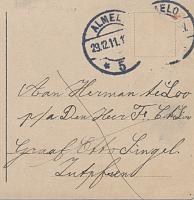 ALMEL
ELO
29.12.11.1
* 5
Aan Herman te Loo
p/a Den Heer Fr.
Graaf Singel
Zutphen